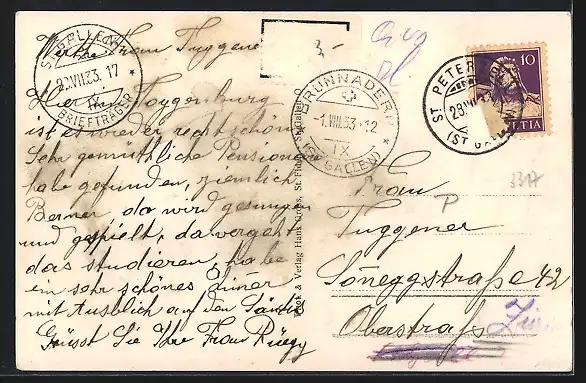 Werthe Frau Tuggener
Hier im Toggenburg
ist es wieder recht schön.
Sehr gemüthliche Pensionen
habe gefunden, ziemlich
Berner, da wird gesungen
und gespielt, da vergeht
das studieren, habe
ein sehr schönes Zimer
mit Ausblick auf den Säntis
Grüsst Sie Ihre Frau Rüegg
ST. GALLEN 1
VIII.33. 17
IX
BRIEFTRÄGER
3.-
BRUNNADERN
-1.VIII.33-12
IX
(ST. GALLEN)
ST. PETERZELL
28.VII.33
(ST. GALLEN)
10
HELVETIA
& Verlag Hans Gross, St. Fiden - St. Gallen
3317
P
Frau
Tuggener
Soneggstraße 42
Oberstraß